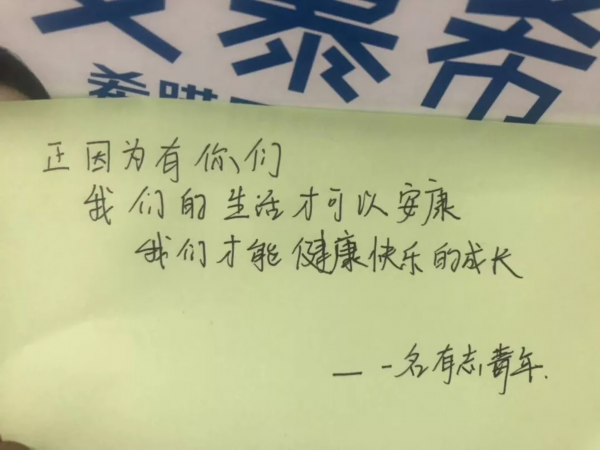 安慕希
正因为有你们
我们的生活才可以安康
我们才能健康快乐的成长
——一名有志青年.